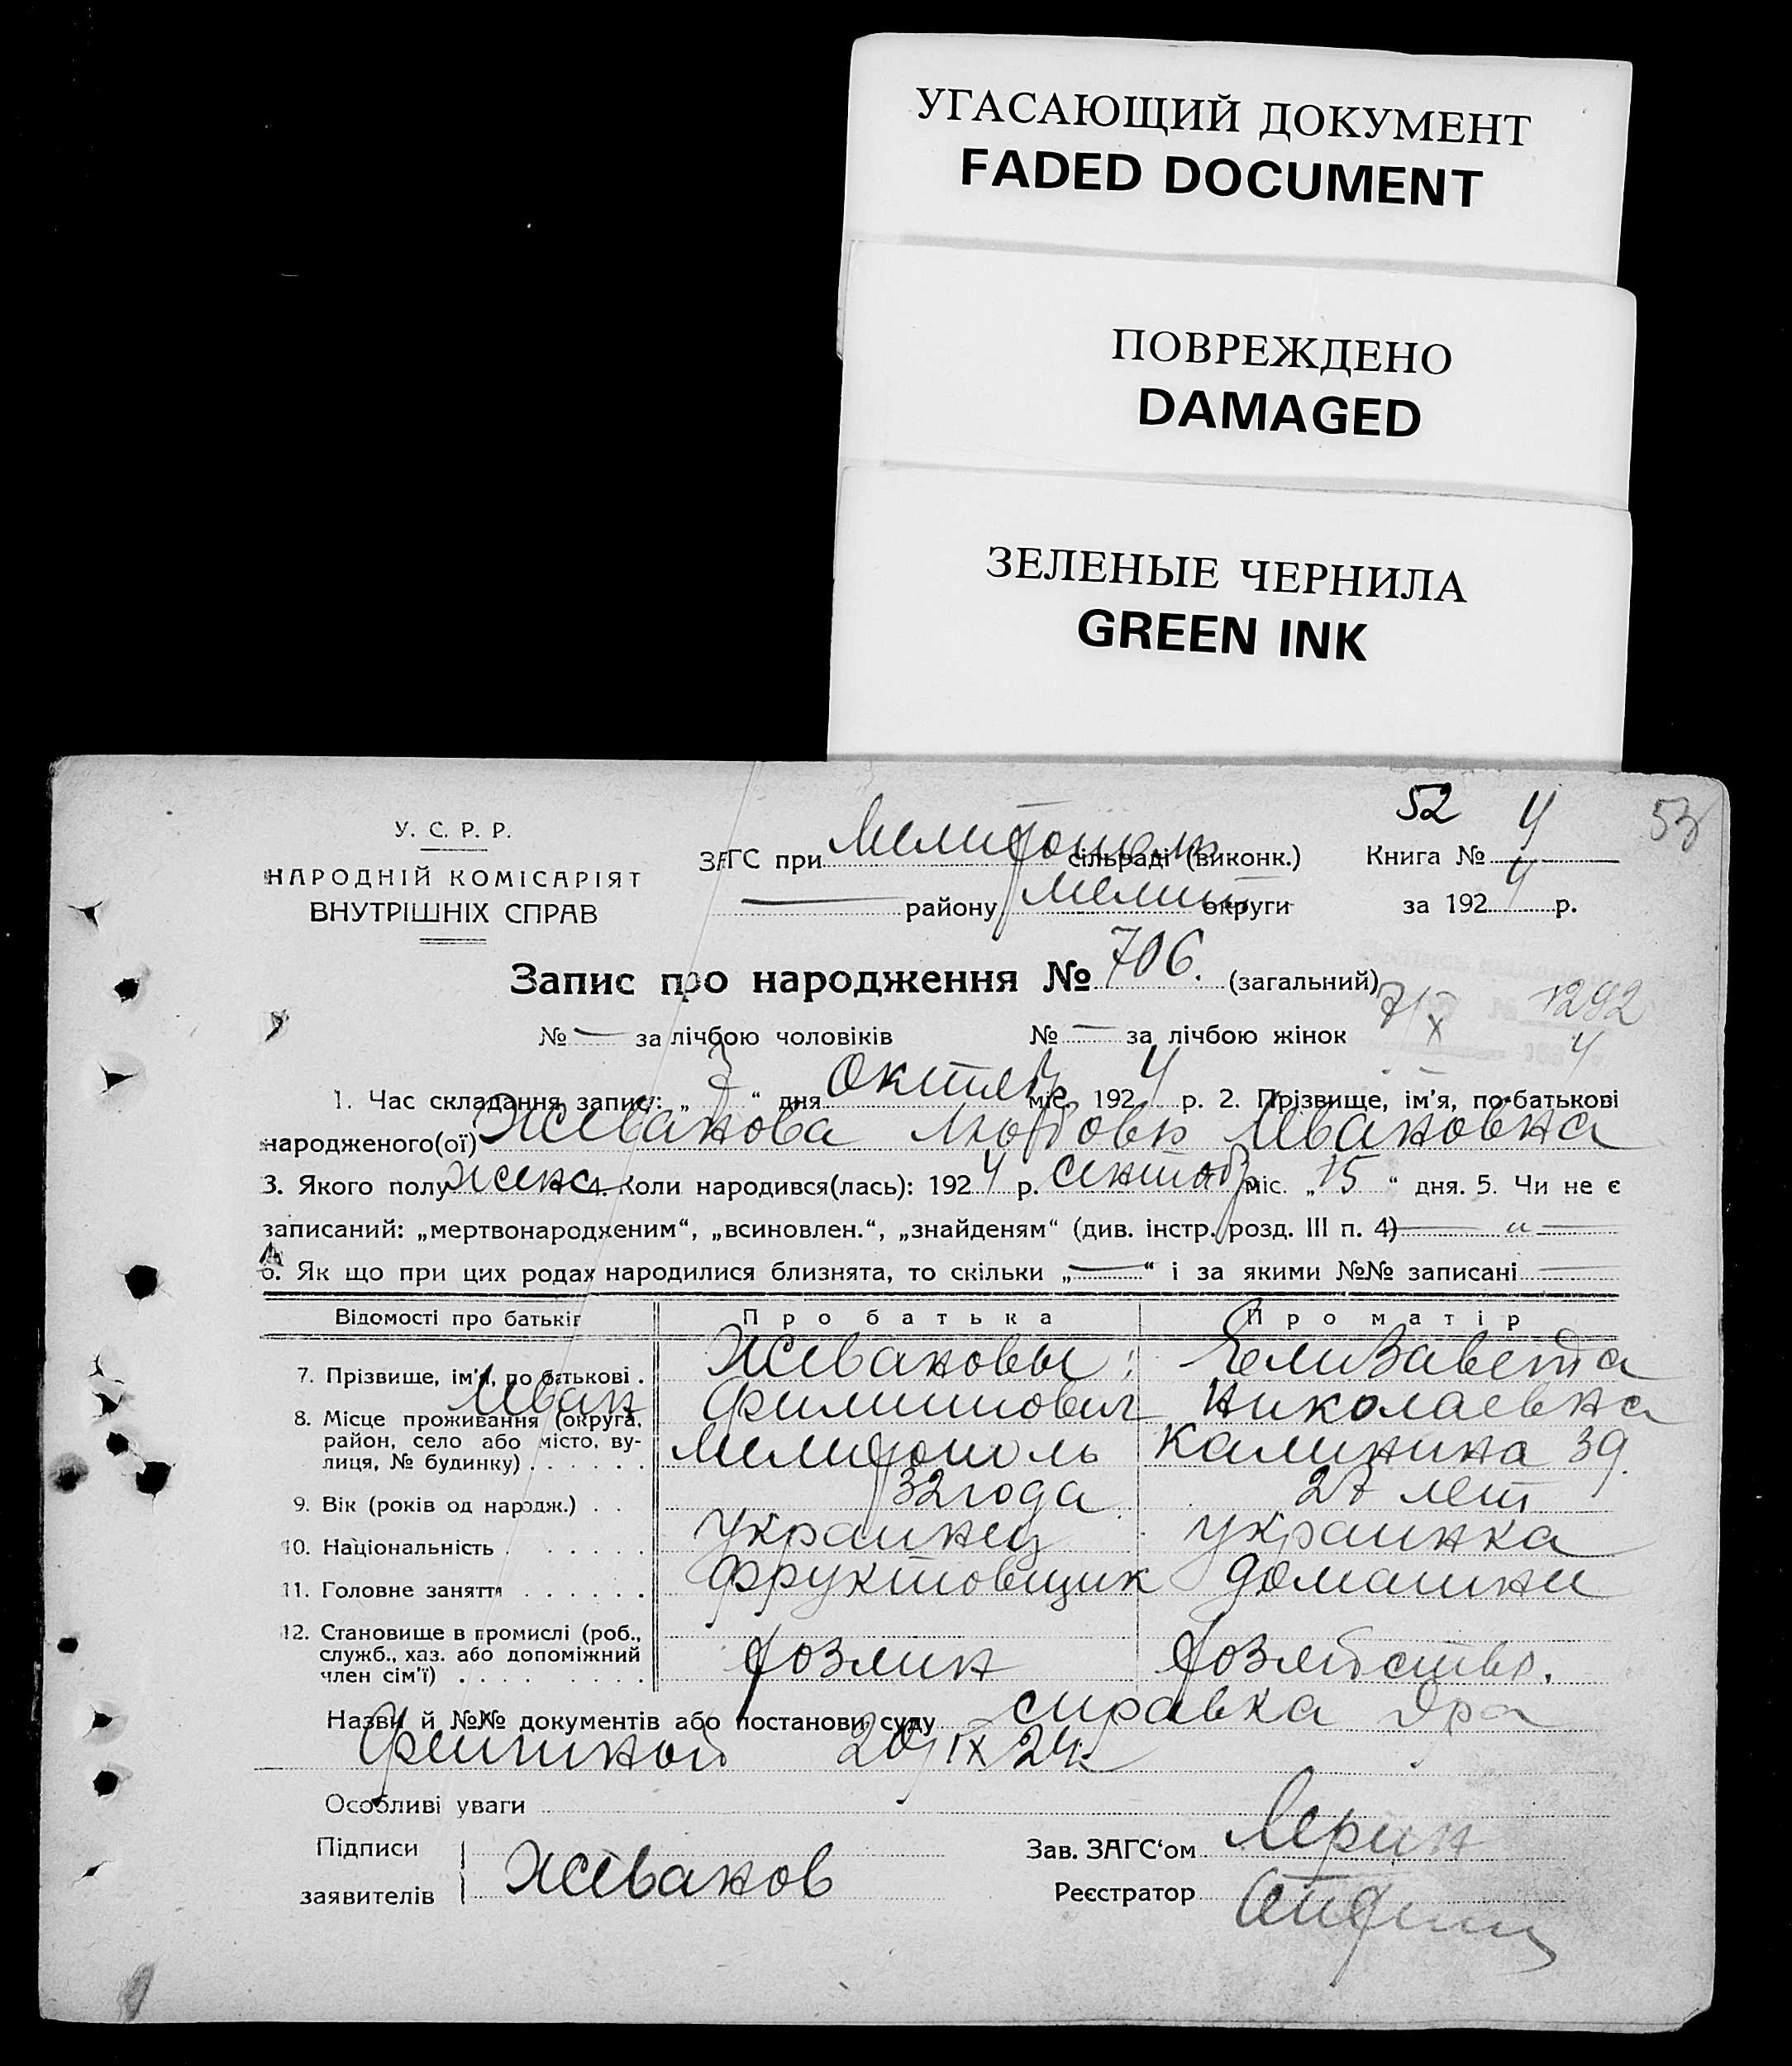 УГАСАЮЩИЙ ДОКУМЕНТ
FADED DOCUMENT
ПОВРЕЖДЕНО
DAMAGED
ЗЕЛЕНЫЕ ЧЕРНИЛА
GREEN INK
52 4 53
У. С. Р. Р.
НАРОДНІЙ КОМІСАРІЯТ
ВНУТРІШНІХ СПРАВ
ЗАГС при Мелитополь сільраді (виконк.) Книга № 4
— району Мелит округи за 1924 р.
Запис про народження № 706. (загальний)
7/X 1292
4
№ — за лічбою чоловіків № — за лічбою жінок
1. Час складання запису: „3“ дня октяб міс. 1924 р. 2. Прізвище, ім'я, по-батькові
народженого(ої) Живанова Любовь Ивановна
3. Якого полу женс 4. Коли народився(лась): 1924 р. сентябр міс. „15“ дня. 5. Чи не є
записаний: „мертвонародженим“, „всиновлен.“, „знайденям“ (див. інстр. розд. III п. 4) — „ —
6. Як що при цих родах народилися близнята, то скільки „—“ і за якими №№ записані —
Відомості про батьків Про батька Про матір
7. Прізвище, ім'я, по батькові . Живановы: Елизавета
Иван Филиппович Николаевна
8. Місце проживання (округа, район, село або місто, вулиця, № будинку) . . . . . . Мелитополь Калинина 39.
9. Вік (років од народж.) . . 32 года 27 лет
10. Національність . . . . . . украинец украинка
11. Головне заняття . . . . . . фруктовщик домашнее
12. Становище в промислі (роб., служб., хаз. або допоміжний член сім'ї) . . . . . . хозяин хозяйство.
Назви й №№ документів або постанови суду справка д-ра
20/IX 24
Особливі уваги
Підписи
заявителів Живанов
Зав. ЗАГС'ом
Реєстратор